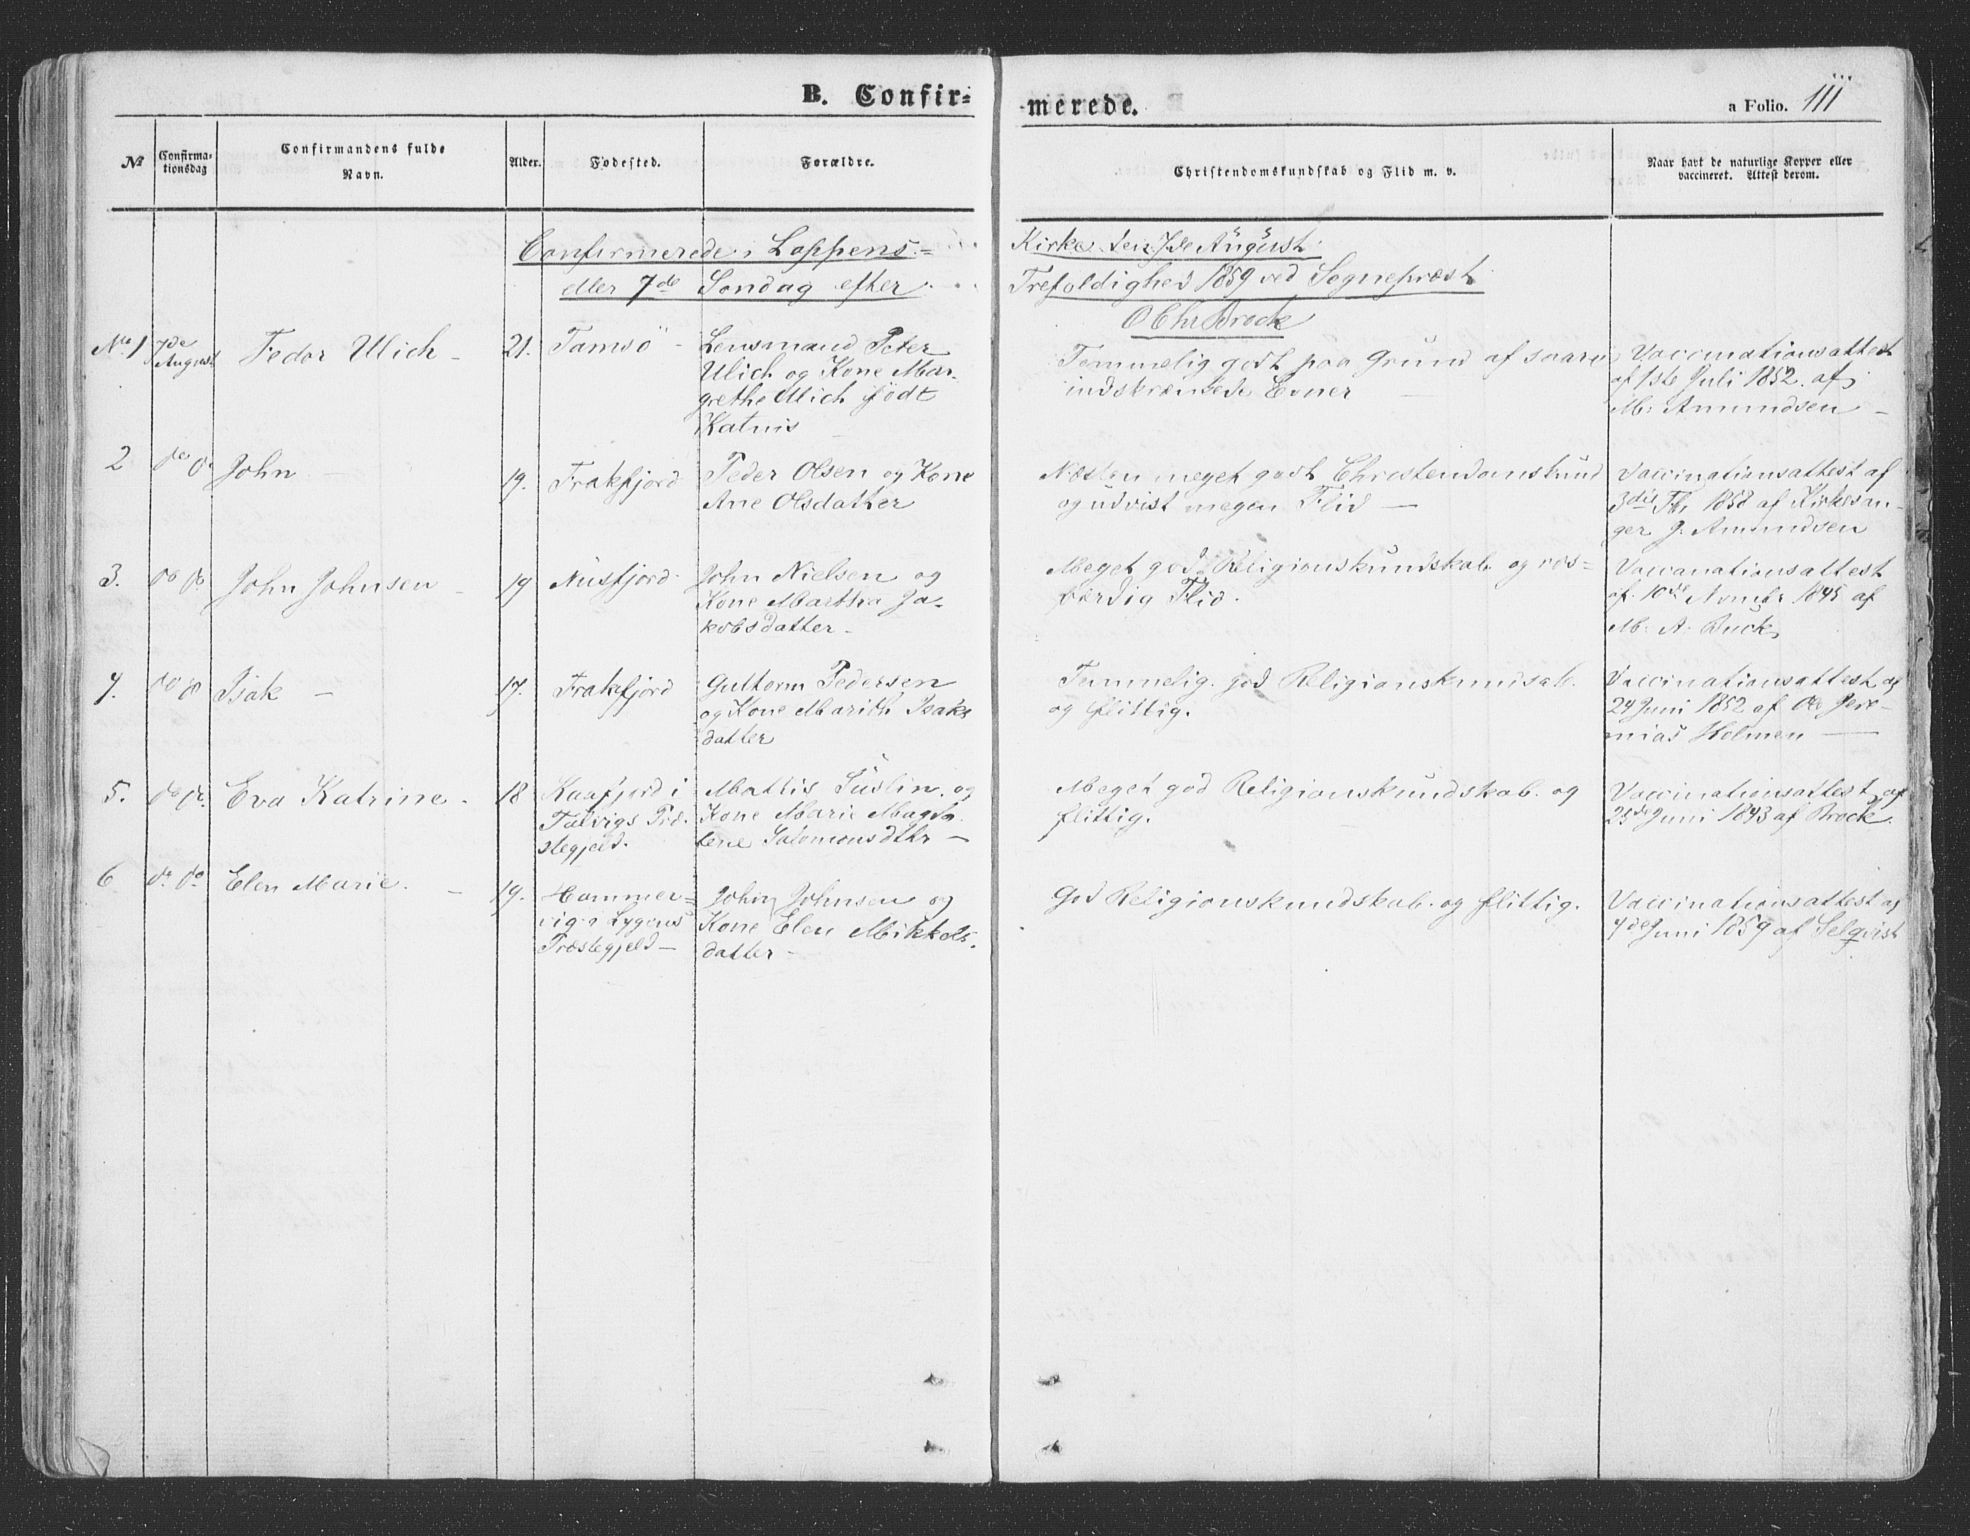 B. Confir-
-merede.
a Folio. 111
№
Confirma-
tionsdag
Confirmandens fulde
Navn.
Alder.
Fødested.
Forældre.
Christendomskundskab og Flid m. v.
Naar havt de naturlige Kopper eller
vaccineret. Attest derom.
Confirmerede i Loppens Kirke den 7de August
eller 7de Søndag efter Trefoldighed 1859 ved Sognepræst
O Chr Brock
No 1 7de August Fedor Ulich - 21. Tamsö - Lensmand Peter
Ulich og Kone Mar-
grethe Ulich født
Katnis
Temmelig godt paa Grund af
indskrænkede Evner
Vaccinationsattest
af 1ste Juli 1852 af
M. Amundsen
2 do do John 19. Frakfjord Peder Olsen og Kone
Ane Olsdatter
Næsten meget godt Christendomskund
og udvist megen Flid
Vaccinationsattest af
1858 af Kirkesan-
ger J. Amundsen
3. do do John Johnsen 19 Nusfjord John Nielsen og
Kone Martha Ja-
kobsdatter
Meget god Religionskundskab og ros-
værdig Flid.
Vaccanationsattest
af 10de 1845 af
M. A. Buck
4. do do Isak - 17. Frakfjord Guttorm Pedersen
og Kone Marith Isaks
datter
Temmelig god Religionskundskab
og flittig.
Vaccinationsattest af
24 Juni 1852 af Ole Jere-
mias Holmen
5. do do. Eva Katrine. 18 Kaafjord i
Talvigs Præ-
stegjeld.
Mattis Suslin og
Kone Marie Magda
lene Salomonsdtr
Meget god Religionskundskab og
flittig.
Vaccinationsattest af
25de Juni 1843 af Brock
6 do do Elen Marie. 19. Hammer-
vig i Lygens
Præstegjeld
John Johnsen og
Kone Elen Mikkels-
datter
God Religionskundskab og flittig.
Vaccinationsattest af
4de Juni 1859 af Selqvist